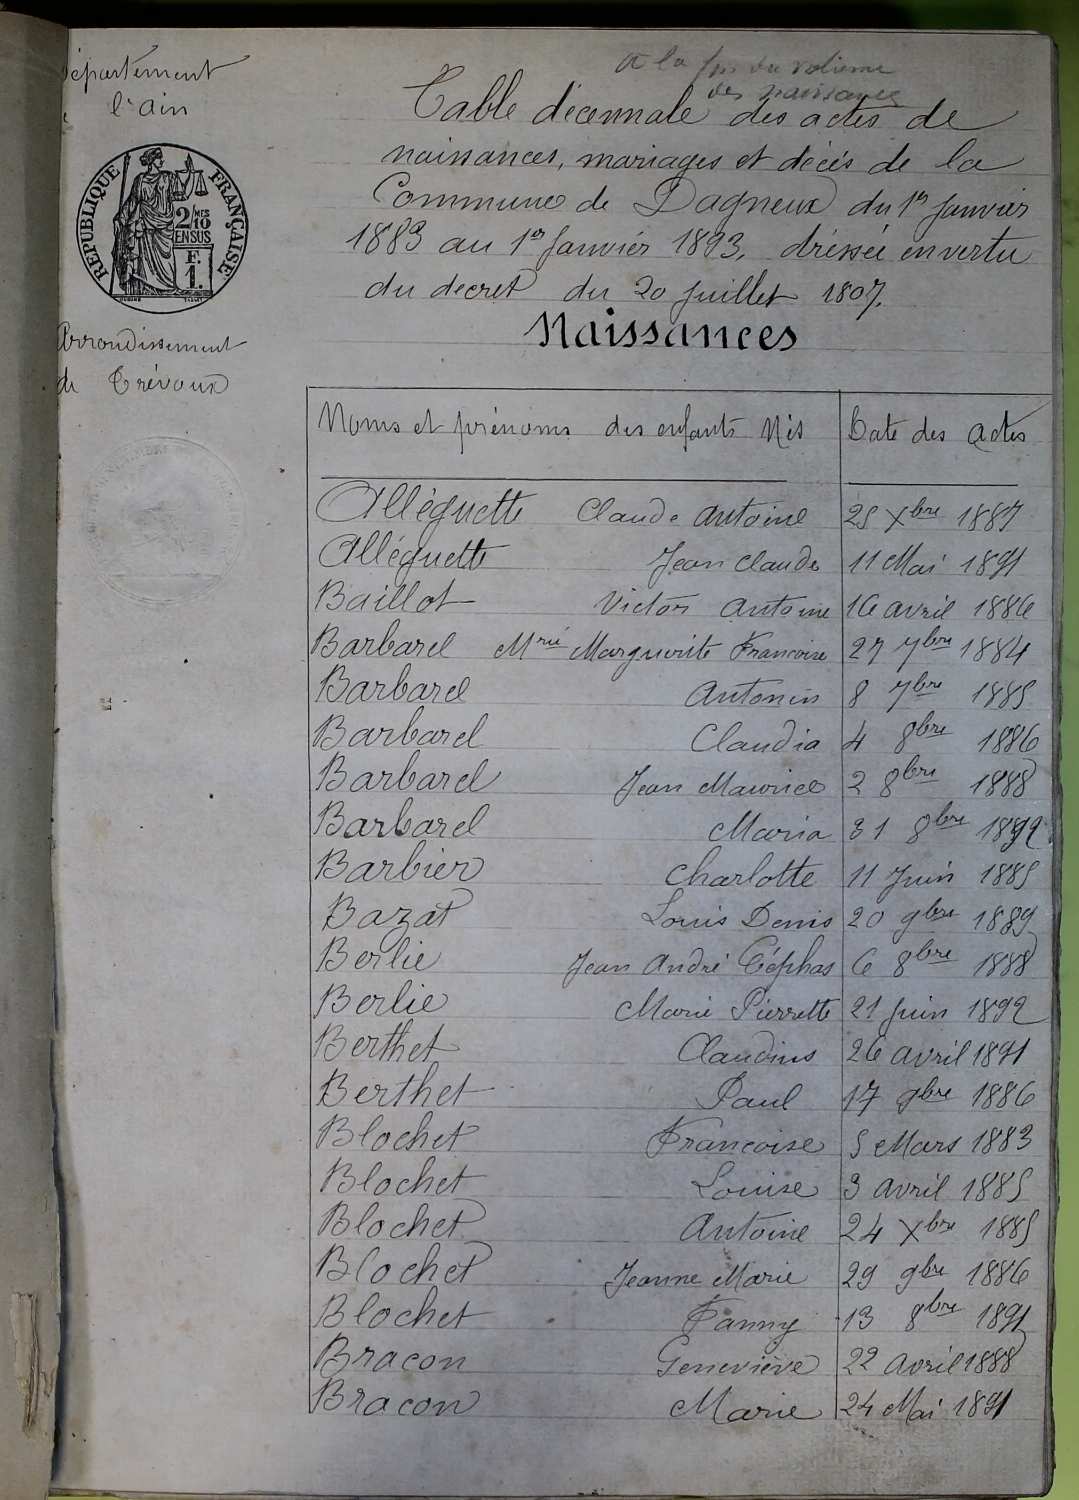 Département
de l'ain
RÉPUBLIQUE FRANÇAISE
2/10MES
EN SUS
F.
1.
Arrondissement
de Trévoux
a la fin du volume
des naissances
Table décennale des actes de
naissances, mariages et décés de la
Commune de Dagneux du 1er Janvier
1883 au 1er Janvier 1893, dréssée en vertu
du decret du 20 Juillet 1807.
Naissances
Noms et prénoms des enfants Nés Date des actes
Alléguette Claude Antoine 25 Xbre 1887
Alléguette Jean Claude 11 Mai 1891
Baillot Victor Antoine 16 avril 1886
Barbarel Mrie Marguerite Francoise 27 7bre 1884
Barbarel Antonin 8 7bre 1885
Barbarel Claudia 4 8bre 1886
Barbarel Jean Maurice 2 8bre 1888
Barbarel Maria 31 8bre 1892
Barbier Charlotte 11 Juin 1885
Bazat Louis Denis 20 9bre 1889
Berlie Jean André Céphas 6 8bre 1888
Berlie Marie Pierrette 21 Juin 1892
Berthet Claudius 26 avril 1891
Berthet Paul 17 9bre 1886
Blochet Francoise 5 Mars 1883
Blochet Louise 3 avril 1885
Blochet Antoine 24 Xbre 1885
Blochet Jeanne Marie 29 9bre 1886
Blochet Fanny 13 8bre 1891
Bracon Geneviève 22 avril 1888
Bracon Marie 24 Mai 1891